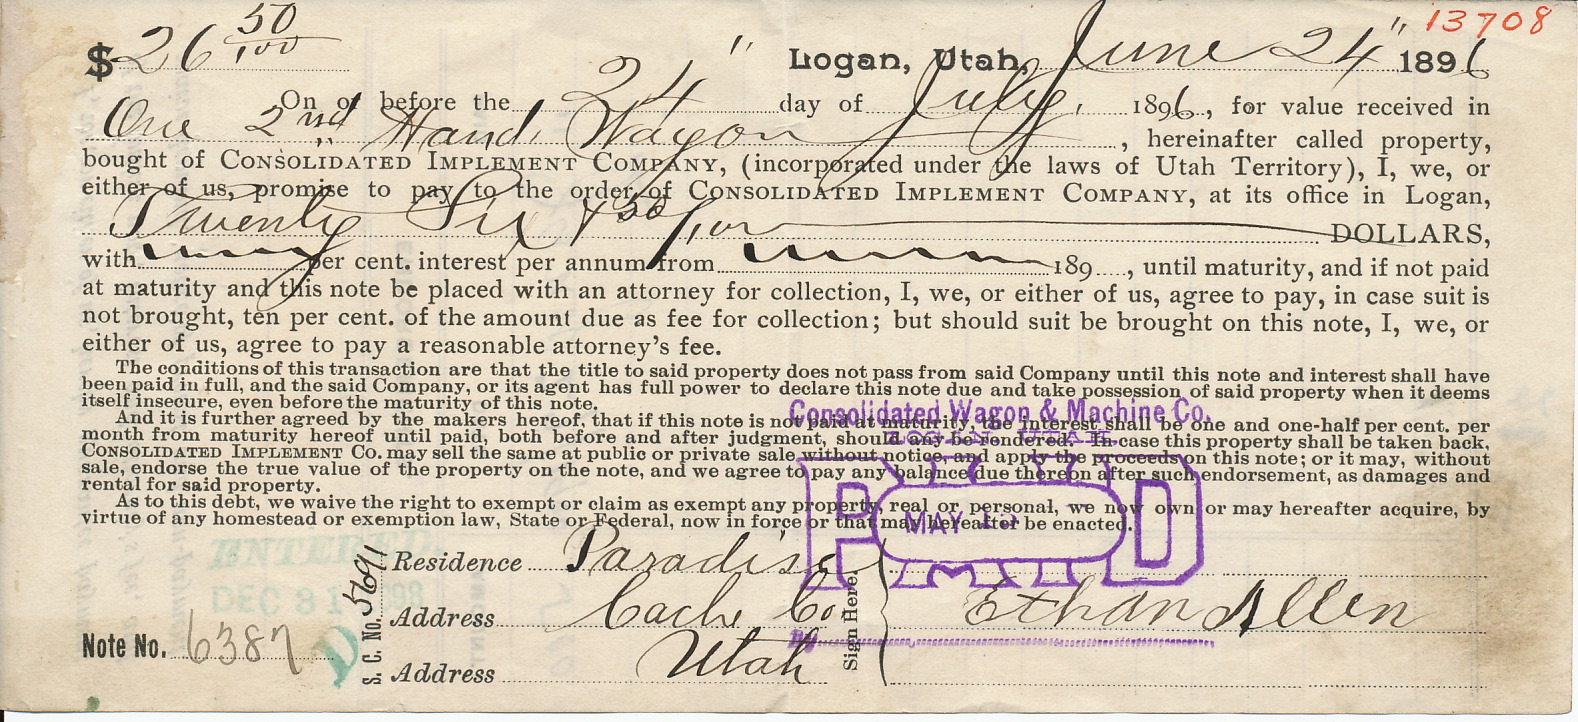 13708
$ 26 50/100 Logan, Utah, June 24" 1896
On or before the 24" day of July, 1896, for value received in
One 2nd Hand Wagon, hereinafter called property,
bought of CONSOLIDATED IMPLEMENT COMPANY, (incorporated under the laws of Utah Territory), I, we, or
either of us, promise to pay to the order of CONSOLIDATED IMPLEMENT COMPANY, at its office in Logan,
Twenty Six & 50/100 DOLLARS,
with per cent. interest per annum from 189 , until maturity, and if not paid
at maturity and this note be placed with an attorney for collection, I, we, or either of us, agree to pay, in case suit is
not brought, ten per cent. of the amount due as fee for collection; but should suit be brought on this note, I, we, or
either of us, agree to pay a reasonable attorney's fee.
The conditions of this transaction are that the title to said property does not pass from said Company until this note and interest shall have
been paid in full, and the said Company, or its agent has full power to declare this note due and take possession of said property when it deems
itself insecure, even before the maturity of this note.
And it is further agreed by the makers hereof, that if this note is not paid at maturity, the interest shall be one and one-half per cent. per
month from maturity hereof until paid, both before and after judgment, should any be rendered. In case this property shall be taken back,
CONSOLIDATED IMPLEMENT CO. may sell the same at public or private sale without notice, and apply the proceeds on this note; or it may, without
sale, endorse the true value of the property on the note, and we agree to pay any balance due thereon after such endorsement, as damages and
rental for said property.
As to this debt, we waive the right to exempt or claim as exempt any property, real or personal, we now own or may hereafter acquire, by
virtue of any homestead or exemption law, State or Federal, now in force or that may hereafter be enacted.
Consolidated Wagon & Machine Co.
LOGAN, UTAH.
PAID
MAY 13
By
ENTERED
DEC 31 1898
D
Note No. 6387
S. C. No. 5691
Residence Paradise
Address Cache Co
Address Utah
Sign Here
Ethan Allen